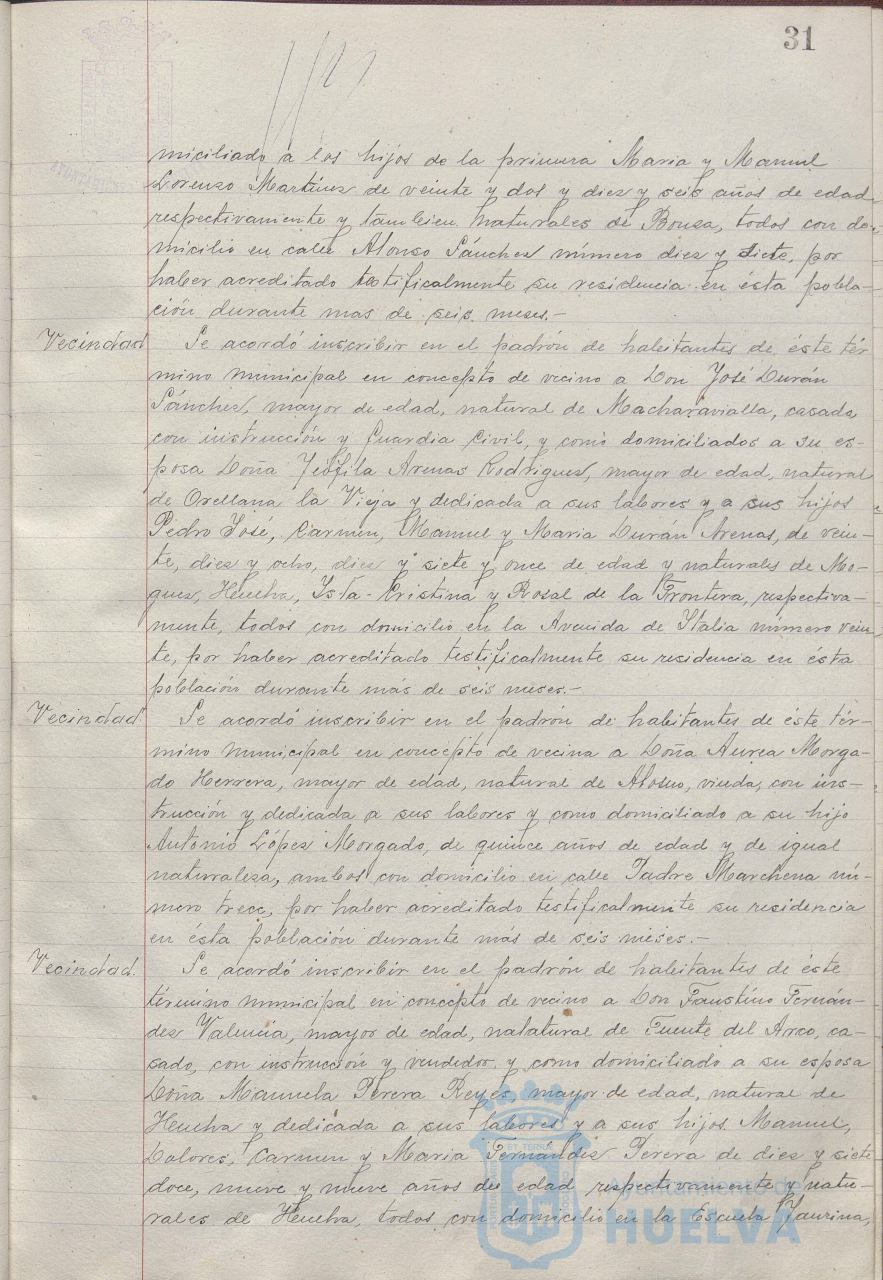 31
miciliado a los hijos de la primera Maria y Manuel
Lorenzo Martínez de veinte y dos y diez y seis años de edad
respectivamente y tambien naturales de Bonza, todos con do-
micilio en calle Alonso Sánchez número diez y siete, por
haber acreditado testificalmente su residencia en ésta pobla-
ción durante mas de seis meses.-
Vecindad
Se acordó inscribir en el padrón de habitantes de éste tér
mino municipal en concepto de vecino a Don José Durán
Sánchez, mayor de edad, natural de Macharavialla, casada
con instrucción y Guardia Civil, y como domiciliados a su es-
posa Doña Teófila Arenas Rodriguez, mayor de edad, natural
de Orellana la Vieja y dedicada a sus labores y a sus hijos
Pedro José, Carmen, Manuel y Maria Durán Arenas, de vein-
te, diez y ocho, diez y siete y once de edad y naturales de Mo-
guer, Huelva, Ysla-Cristina y Rosal de la Frontera, respectiva-
mente, todos con domicilio en la Avenida de Italia número vein-
te, por haber acreditado testificalmente su residencia en ésta
población durante más de seis meses.-
Vecindad
Se acordó inscribir en el padrón de habitantes de éste tér-
mino municipal en concepto de vecina a Doña Aurea Morga-
do Herrera, mayor de edad, natural de Alosno, viuda, con ins-
trucción y dedicada a sus labores y como domiciliado a su hijo
Antonio López Morgado, de quince años de edad y de igual
naturaleza, ambos con domicilio en calle Padre Marchena nú-
mero trece, por haber acreditado testificalmente su residencia
en ésta población durante más de seis meses.-
Vecindad.
Se acordó inscribir en el padrón de habitantes de éste
término municipal en concepto de vecino a Don Faustino Fernán-
dez Valencia, mayor de edad, natatural de Fuente del Arco, ca-
sado, con instrucción y vendedor y como domiciliado a su esposa
Doña Manuela Perera Reyes, mayor de edad, natural de
Huelva y dedicada a sus labores y a sus hijos Manuel,
Dolores, Carmen y Maria Fernández Perera de diez y siete
doce, nueve y nueve años de edad respectivamente y natu-
rales de Huelva, todos con domicilio en la Escuela Taurina,
Ayuntamiento de
HUELVA